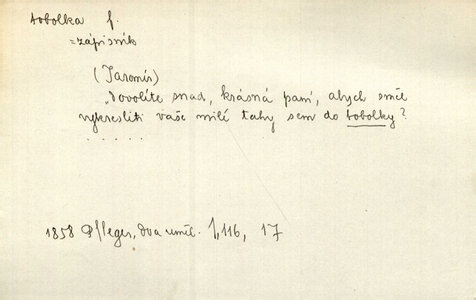 tobolka f.
=zápisník
(Jaromír)
„Dovolíte snad, krásná paní, abych směl
vykresliti vaše milé tahy sem do tobolky?
. . . . .
1858 Pfleger, Dva uměl. I, 116, 17